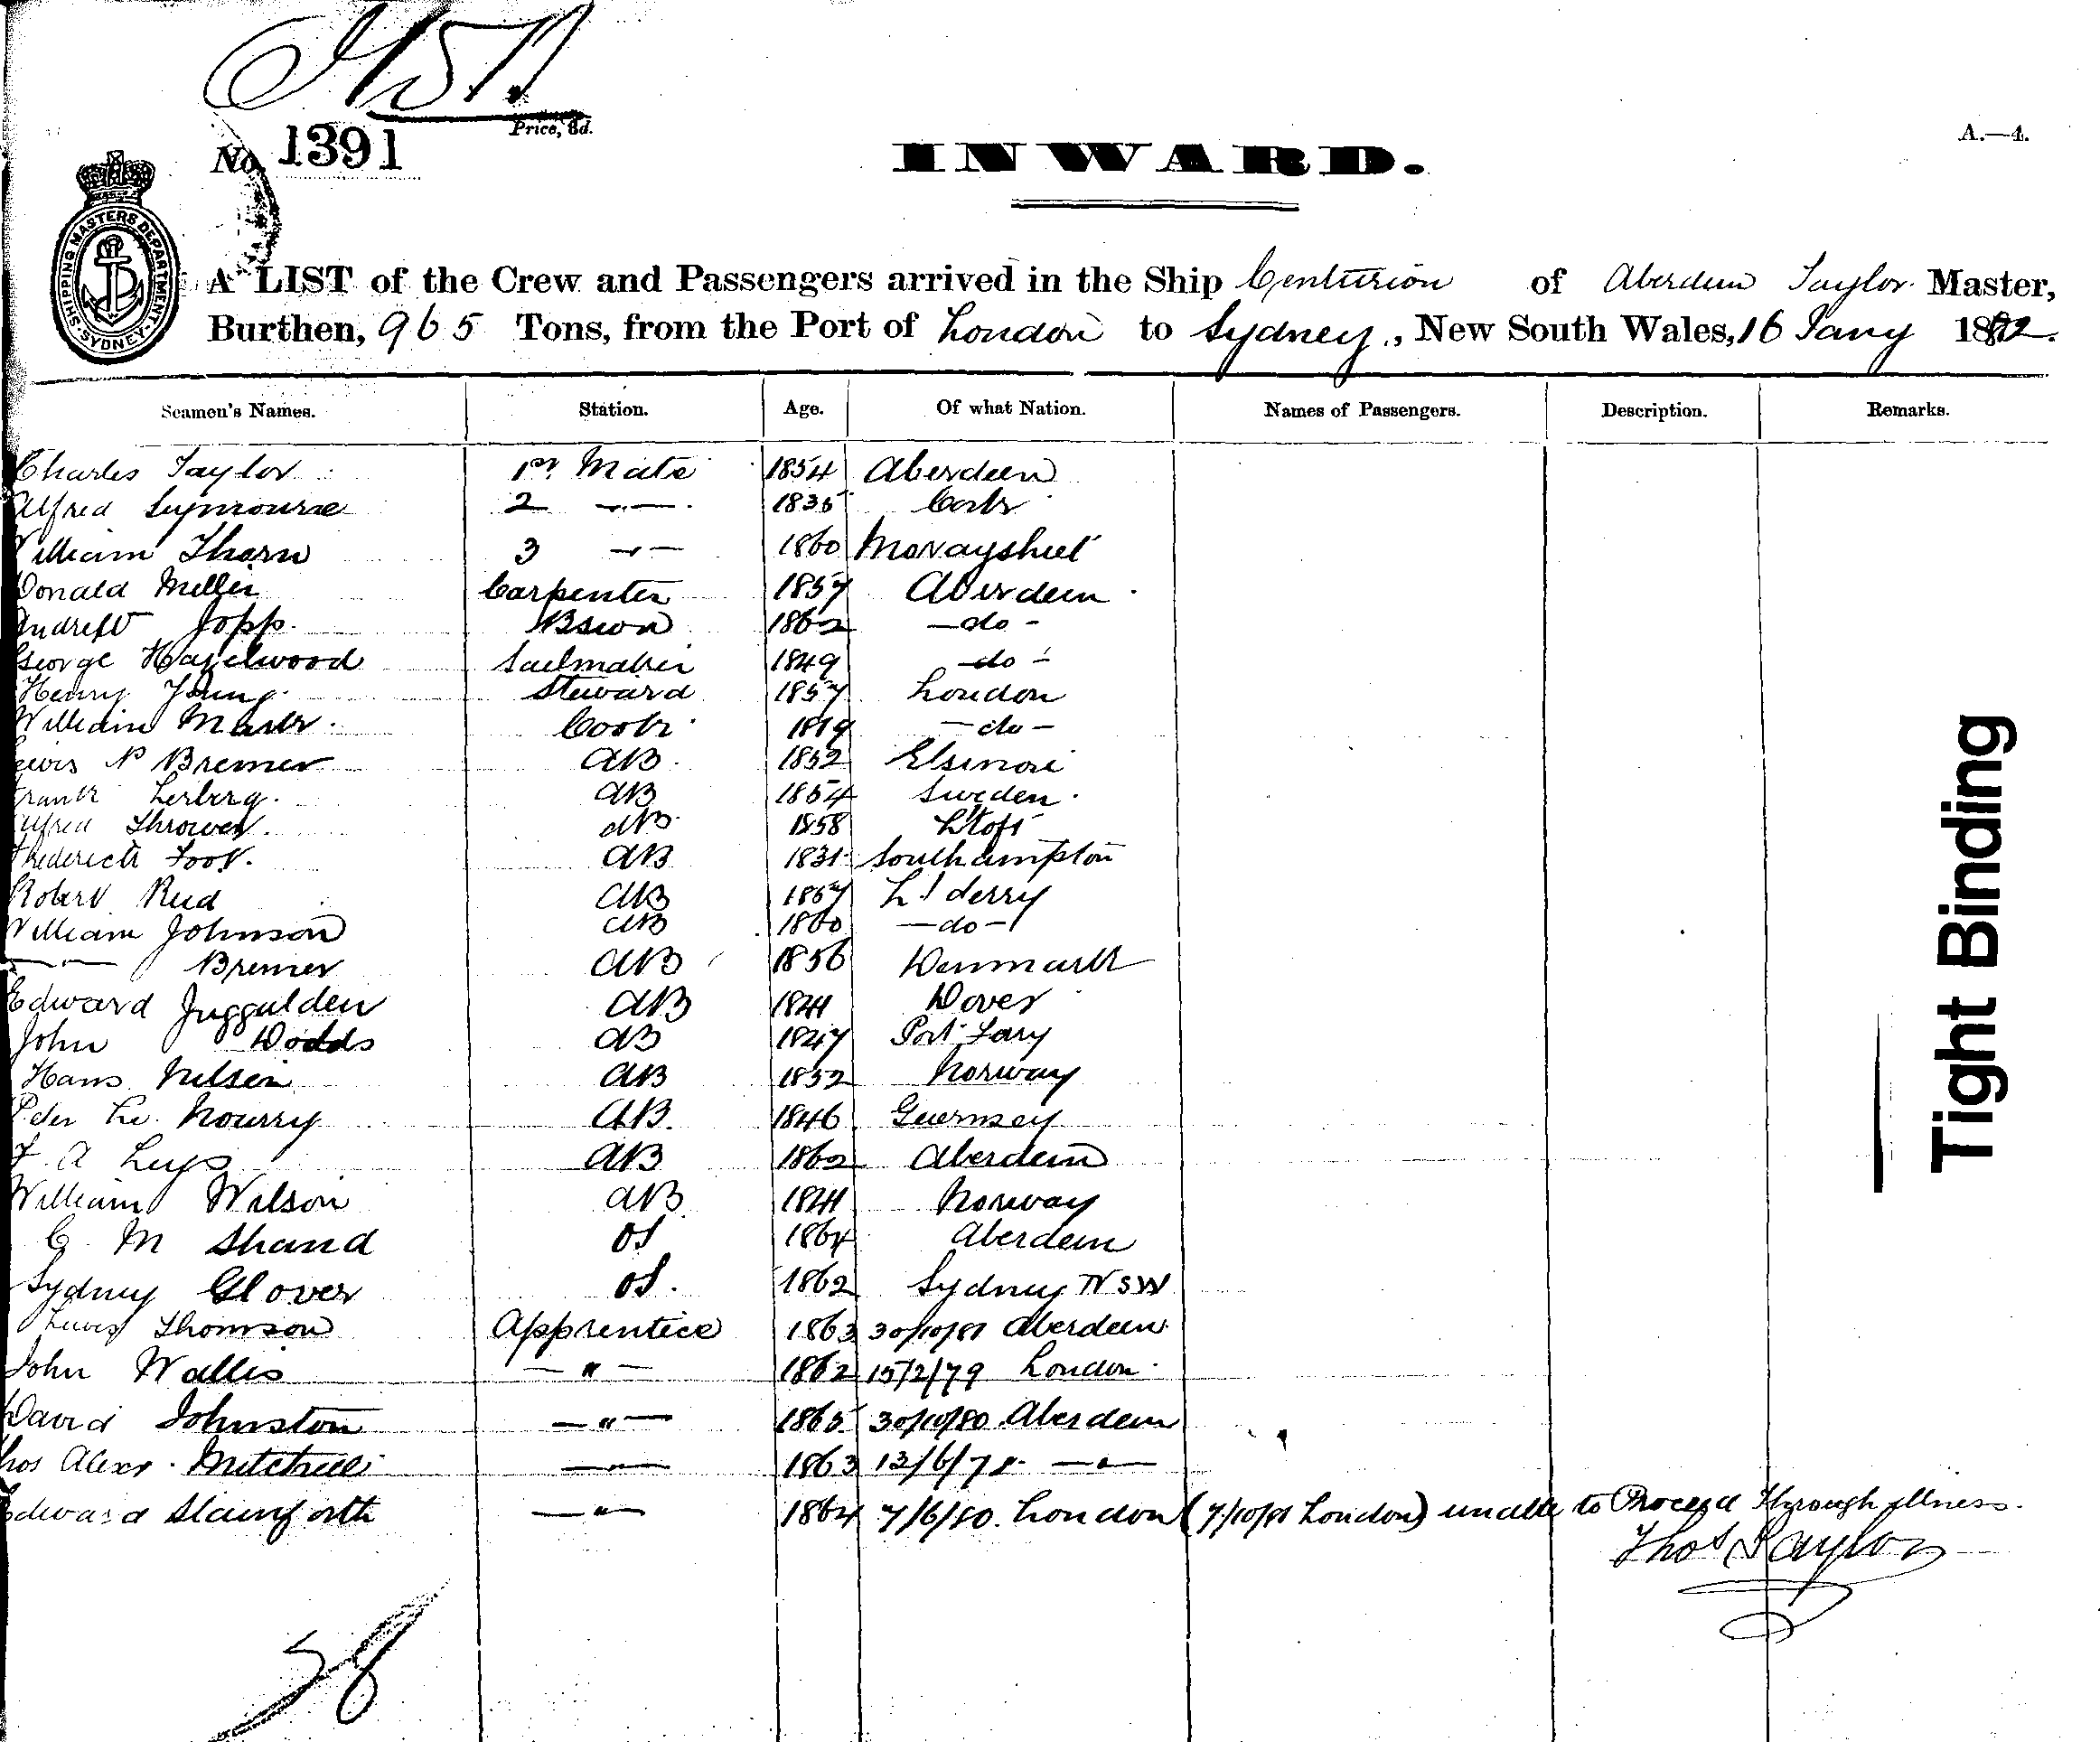 Price, 8d.
No. 1391
A.—4.
INWARD.
SHIPPING MASTERS DEPARTMENT. SYDNEY.
A LIST of the Crew and Passengers arrived in the Ship Centurion of Aberdeen Taylor Master,
Burthen, 965 Tons, from the Port of London to Sydney, New South Wales, 16 Jany 1882.
Seamen's Names. Station. Age. Of what Nation. Names of Passengers. Description. Remarks.
Charles Taylor 1st Mate 1854 Aberdeen
Alfred Seymoure 2 —"— 1835 Cork
William Tharn 3 —"— 1860 Morayshiel
Donald Miller Carpenter 1857 Aberdeen
Andrew Jopp Bswn 1862 —do—
George Hazelwood Sailmaker 1849 —do—
Henry Young Steward 1857 London
William Mark Cook 1819 —do—
Lewis P Bremer AB 1852 Elsinore
Frank Lerberg AB 1854 Sweden
Alfred Thrower AB 1858 L'toft
Frederick Foot AB 1831 Southampton
Robert Reid AB 1857 Ld derry
William Johnson AB 1860 —do—
—"— Bremer AB 1856 Denmark
Edward Juggulden AB 1841 Dover
John Dodds AB 1847 Port Lary
Hans Nilsen AB 1852 Norway
Peter Le Nourry AB 1846 Guernsey
F. A Leys AB 1862 Aberdeen
William Wilson AB 1841 Norway
C. M Shand OS 1864 Aberdeen
Sydney Glover OS. 1862 Sydney NSW
Lewis Thomson Apprentice 1863 30/10/81 Aberdeen
John Wallis —"— 1862 15/2/79 London
David Johnston —"— 1865 30/10/80 Aberdeen
Thos Alexr. Mitchell —"— 1863 13/6/78 —"—
Edward Stamforth —"— 1864 7/6/80. London (7/10/81 London) unable to Proceed through illness.
Thos Taylor
28
Tight Binding